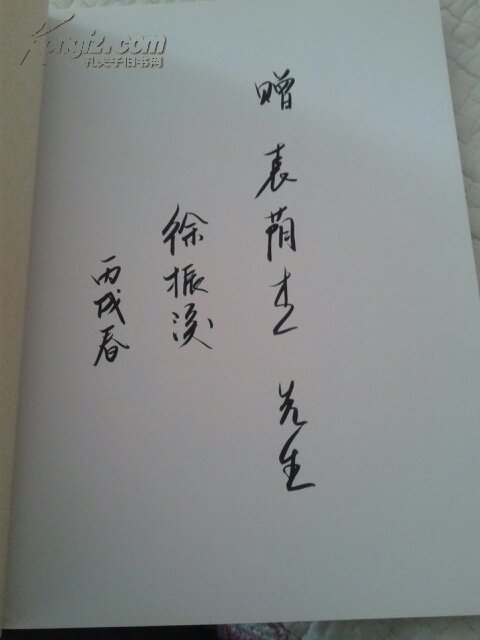 赠 袁荫杰 先生
徐振溪
丙戌春
Kongfz.com
孔夫子旧书网